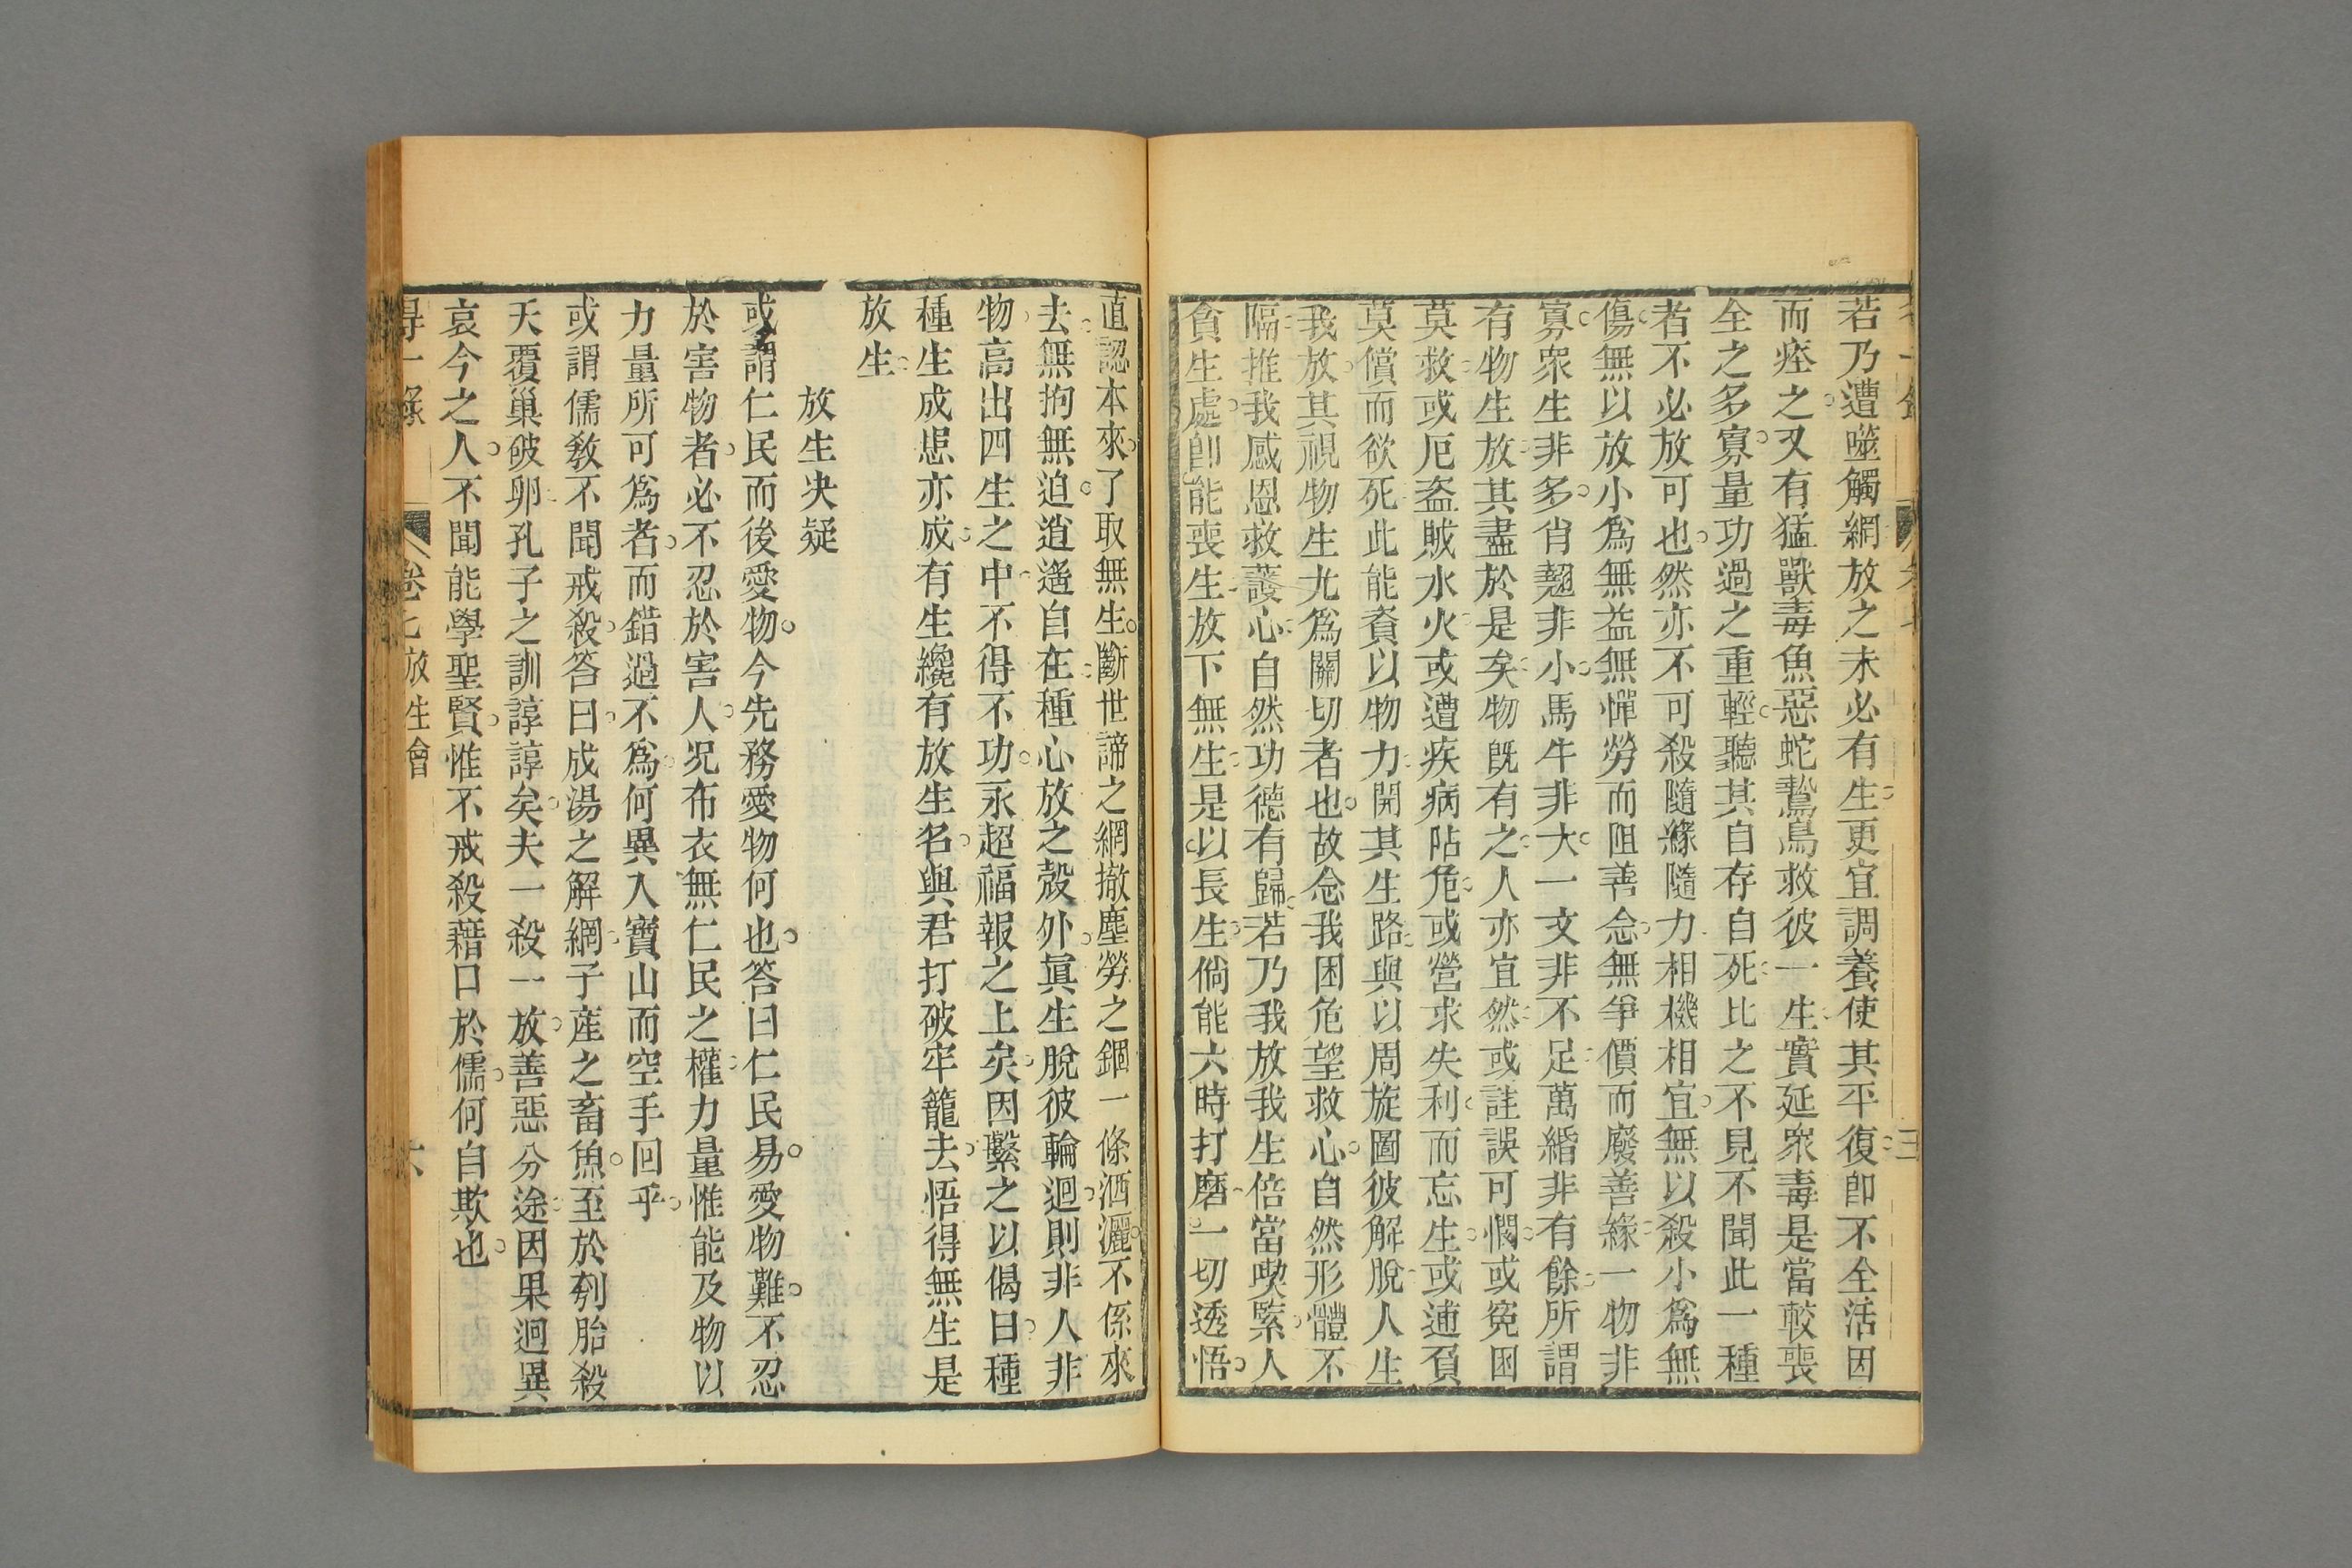 若乃遭噬觸網放之未必有生更宜調養使其平復卽不全活因
而瘞之又有猛獸毒魚惡蛇鷙鳥救彼一生實延眾毒是當較喪
全之多寡量功過之重輕聽其自存自死比之不見不聞此一種
者不必放可也然亦不可殺隨緣隨力相機相宜無以殺小爲無
傷無以放小爲無益無憚勞而阻善念無爭價而廢善緣一物非
寡眾生非多肖翹非小馬牛非大一文非不足萬緡非有餘所謂
有物生放其盡於是矣物旣有之人亦宜然或詿誤可憫或寃困
莫救或厄盜賊水火或遭疾病阽危或營求失利而忘生或逋負
莫償而欲死此能資以物力開其生路與以周旋圖彼解脫人生
我放其視物生尤爲關切者也故念我困危望救心自然形體不
隔推我感恩救護心自然功德有歸若乃我放我生倍當喫緊人
貪生處卽能喪生放下無生是以長生倘能六時打磨一切透悟
直認本來了取無生斷世諦之網撤塵勞之錮一條洒灑不係來
去無拘無迫逍遙自在種心放之殼外眞生脫彼輪迴則非人非
物高出四生之中不得不功永超福報之上矣因繫之以偈曰種
種生成悲亦成有生纔有放生名與君打破牢籠去悟得無生是
放生
放生決疑
或謂仁民而後愛物今先務愛物何也答曰仁民易愛物難不忍
於害物者必不忍於害人况布衣無仁民之權力量惟能及物以
力量所可爲者而錯過不爲何異入寶山而空手回乎
或謂儒敎不聞戒殺答曰成湯之解網子產之畜魚至於刳胎殺
夭覆巢破卵孔子之訓諄諄矣夫一殺一放善惡分途因果迥異
哀今之人不聞能學聖賢惟不戒殺藉口於儒何自欺也
得一錄 卷七 放生會 六